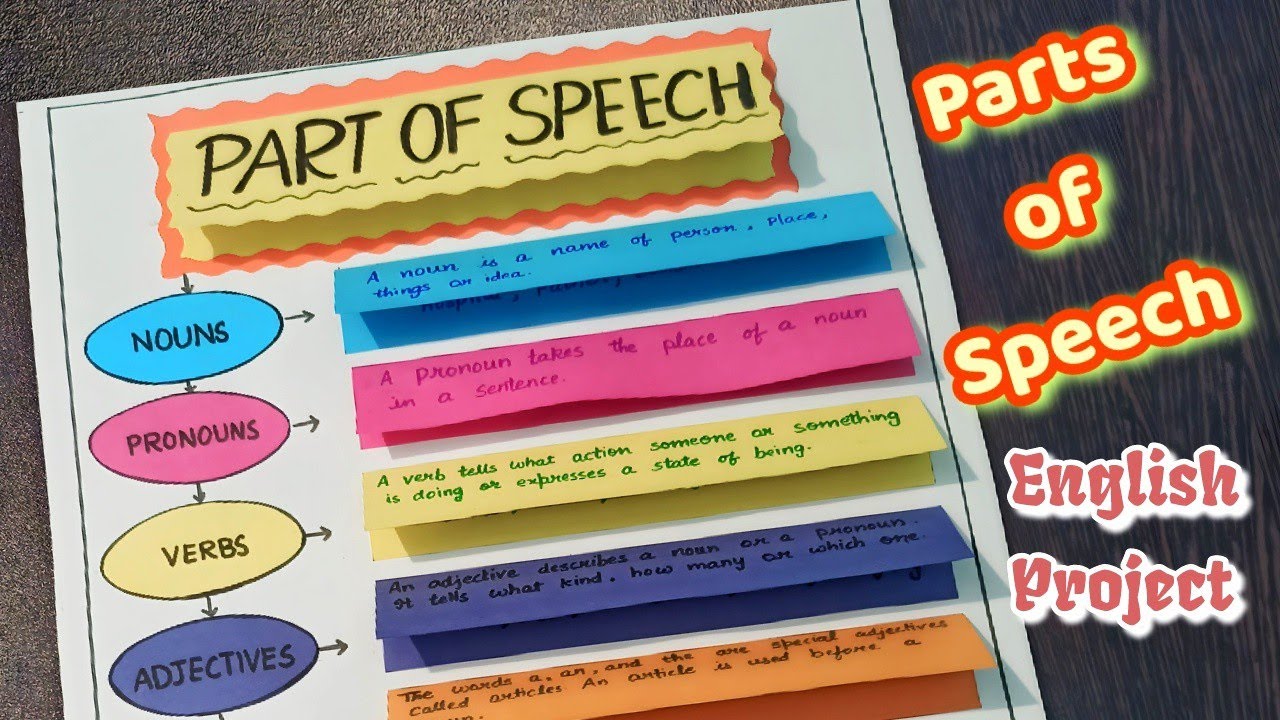 PART OF SPEECH
NOUNS
A noun is a name of person, place,
things or idea.
PRONOUNS
A pronoun takes the place of a noun
in a sentence.
VERBS
A verb tells what action someone or something
is doing or expresses a state of being.
ADJECTIVES
An adjective describes a noun or a pronoun.
It tells what kind, how many or which one.
The words a, an, and the are special adjectives
called articles An article is used before a
Parts
of
Speech
English
Project